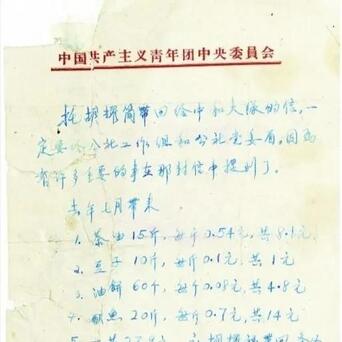 中国共产主义青年团中央委員会
托胡耀简带回给中和大队的信,一
定要给公社工作组和公社党委看,因为
有许多重要的事在那封信中提到了。
去年七月带来
1. 茶油15斤,每斤0.54元,共8.1元
2. 豆子10斤,每斤0.1元,共1元
3. 油餅60个,每斤0.08元,共4.8元
4. 魚20斤,每斤0.7元,共14元